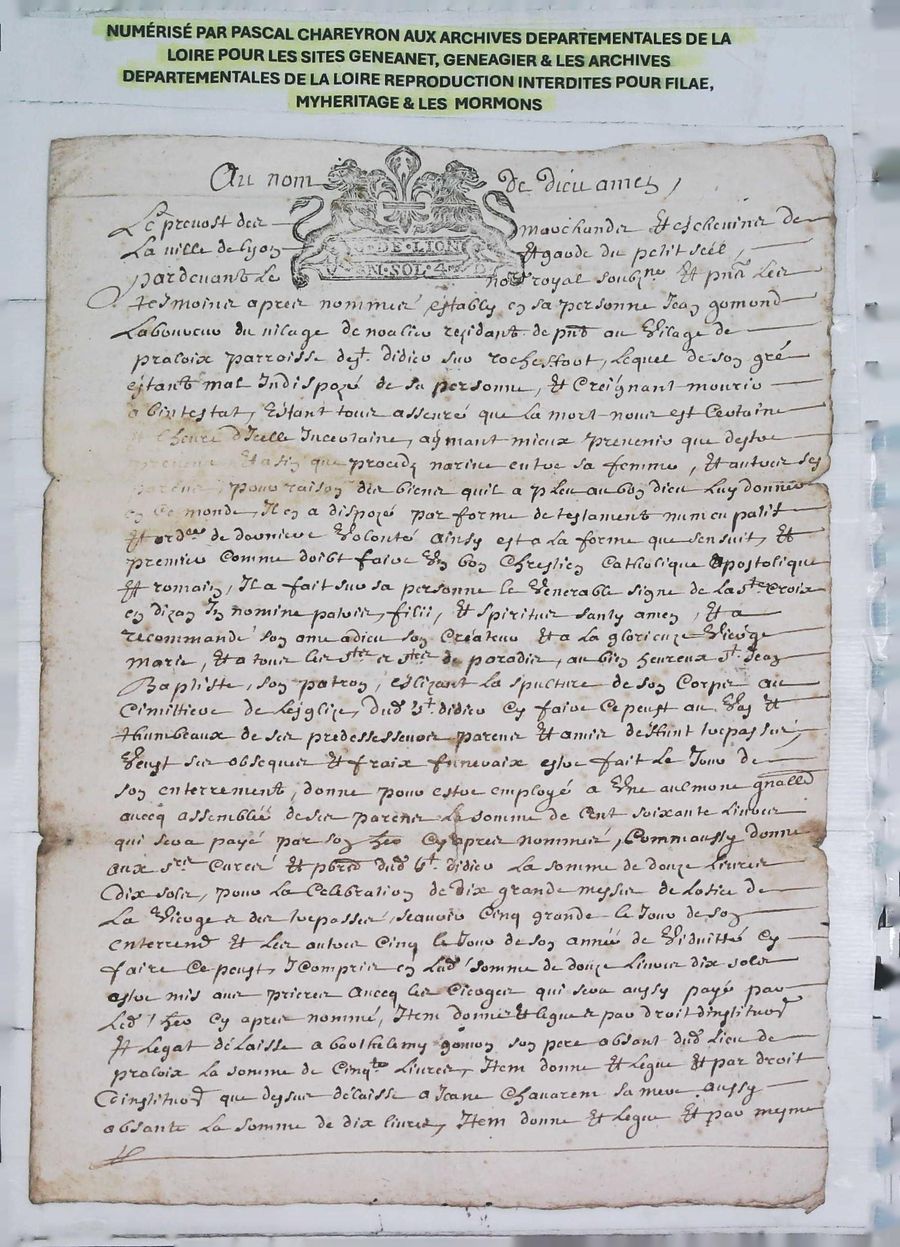 NUMÉRISÉ PAR PASCAL CHAREYRON AUX ARCHIVES DEPARTEMENTALES DE LA
LOIRE POUR LES SITES GENEANET, GENEAGIER & LES ARCHIVES
DEPARTEMENTALES DE LA LOIRE REPRODUCTION INTERDITES POUR FILAE,
MYHERITAGE & LES MORMONS
Au nom de dieu amen,
Le prevost des marchands Et eschevins de
La ville de Lyon Et garde du petit seel
G. DE. LION
EN. SOL. 4 D
pardevant Le no.re royal soubz.né Et p.nts Les
tesmoins apres nommés estably en sa personne Jean gomond
Laboureur du vilage de noalieu residant de p.nt au Vilage de
praloix parroisse de s.t didieu sur rochefort, Lequel de son gré
estant mal Indisposé de sa personne, Et Creignant mourir
abintestat, Estant tous asseuré que La mort nous est Certaine
Et L'heure d'Icelle Incertaine, aymant mieux prevenir que destre
prevenu Et afin que procedz narive entre sa femme, Et autres ses
parens, pour raison des biens quil a pleu au bon dieu Luy donner
en Ce monde, Il en a disposé par forme de testament nuncupatif
Et ord.ce de derniere Volonté ainsy est a la forme que sensuit, Et
premier comme doibt faire Un bon Chrestien Catholique apostolique
Et romain, Il a fait sur sa personne le Venerable signe de La s.te Croix
en dizan In nomine patris, filii, Et spiritus santy amen, Et a
recommandé son ame a dieu son Createur Et a La glorieuze Vierge
marie, Et a tous Les s.ts et s.tes de paradis, au bien heureux s.t Jean
Baptiste, son patron, eslizant La spulture de son Corps au
Cimittiere de Lesglize dud. s.t didieu Cy faire Ce peust au Vas Et
thumbeaux de ses predessesseurs parens Et amis deffunt trepassés,
Veust ses obseques Et fraix funeraix estre fait Le Jour de
son enterrement, donne pour estre employé a Une aulmone gnalle
avecq assemblée de ses parens La somme de Cent soixante Livres
qui sera payé par son her. Cy apres nommés, Comm aussy donne
aux srs. Curés Et pbres dud. s.t didieu La somme de douze Livres
dix sols, pour La Celebration de dix grande messes de Lofice de
La Vierge et des trepassés, scauoir Cinq grande Le Jour de son
enterremt Et Les autres Cinq le Jour de son année de Viduitté Cy
faire Ce peust, Y Compris en Lad. somme de douze Livres dix sols
estre mis aux prieres avecq Les Cierges qui sera aussy payé par
Led. her. Cy apres nommé, Item donne Et legue par droit dinstitu.on
Et Legat delaisse a barthelemy gomon son pere absant dud. Lieu de
praloix La somme de Cinq.te Livres, Item donne Et Legue Et par droit
dinstitu.on que dessus delaisse a Jeane Chavarem sa mere aussy
absante La somme de dix livres, Item donne Et Legue Et par mesme